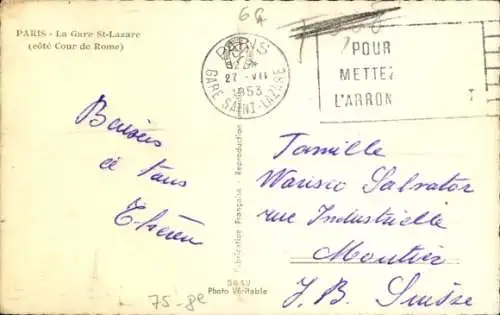 PARIS - La Gare St-Lazare
(côté Cour de Rome)
6G
PARIS
27 -VII
1953
GARE SAINT-LAZARE
POUR
METTEZ
L'ARRON
Baisers
à tous
Famille
Warisco Salvator
rue Industrielle
Moutier
J. B. Suisse
Fabrication Française - Reproduction
Photo Véritable
75-8e